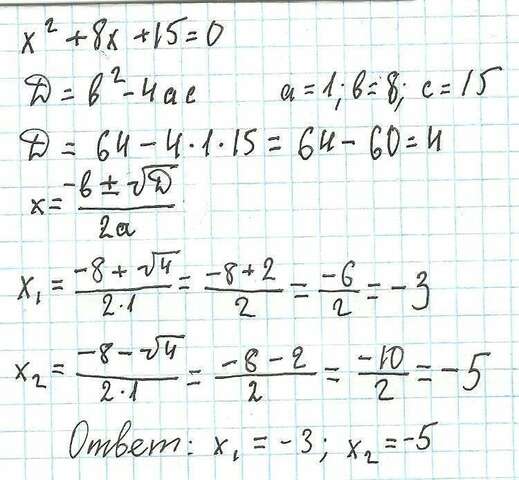 x² + 8x + 15 = 0
D = b² - 4ac a = 1; b = 8; c = 15
D = 64 - 4·1·15 = 64 - 60 = 4
x = (-b ± √D)/(2a)
x₁ = (-8 + √4)/(2·1) = (-8 + 2)/2 = (-6)/2 = -3
x₂ = (-8 - √4)/(2·1) = (-8 - 2)/2 = (-10)/2 = -5
Ответ: x₁ = -3; x₂ = -5